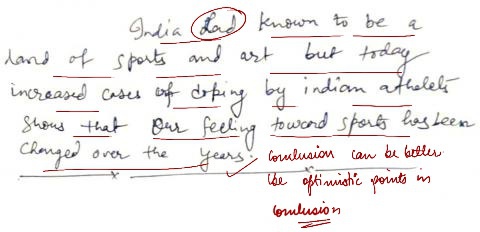 India had known to be a
land of sports and art but today
increased cases of doping by indian athelets
shows that Our feeling toward sports has been
changed over the years.
Conclusion can be better
be optimistic points in
conclusion